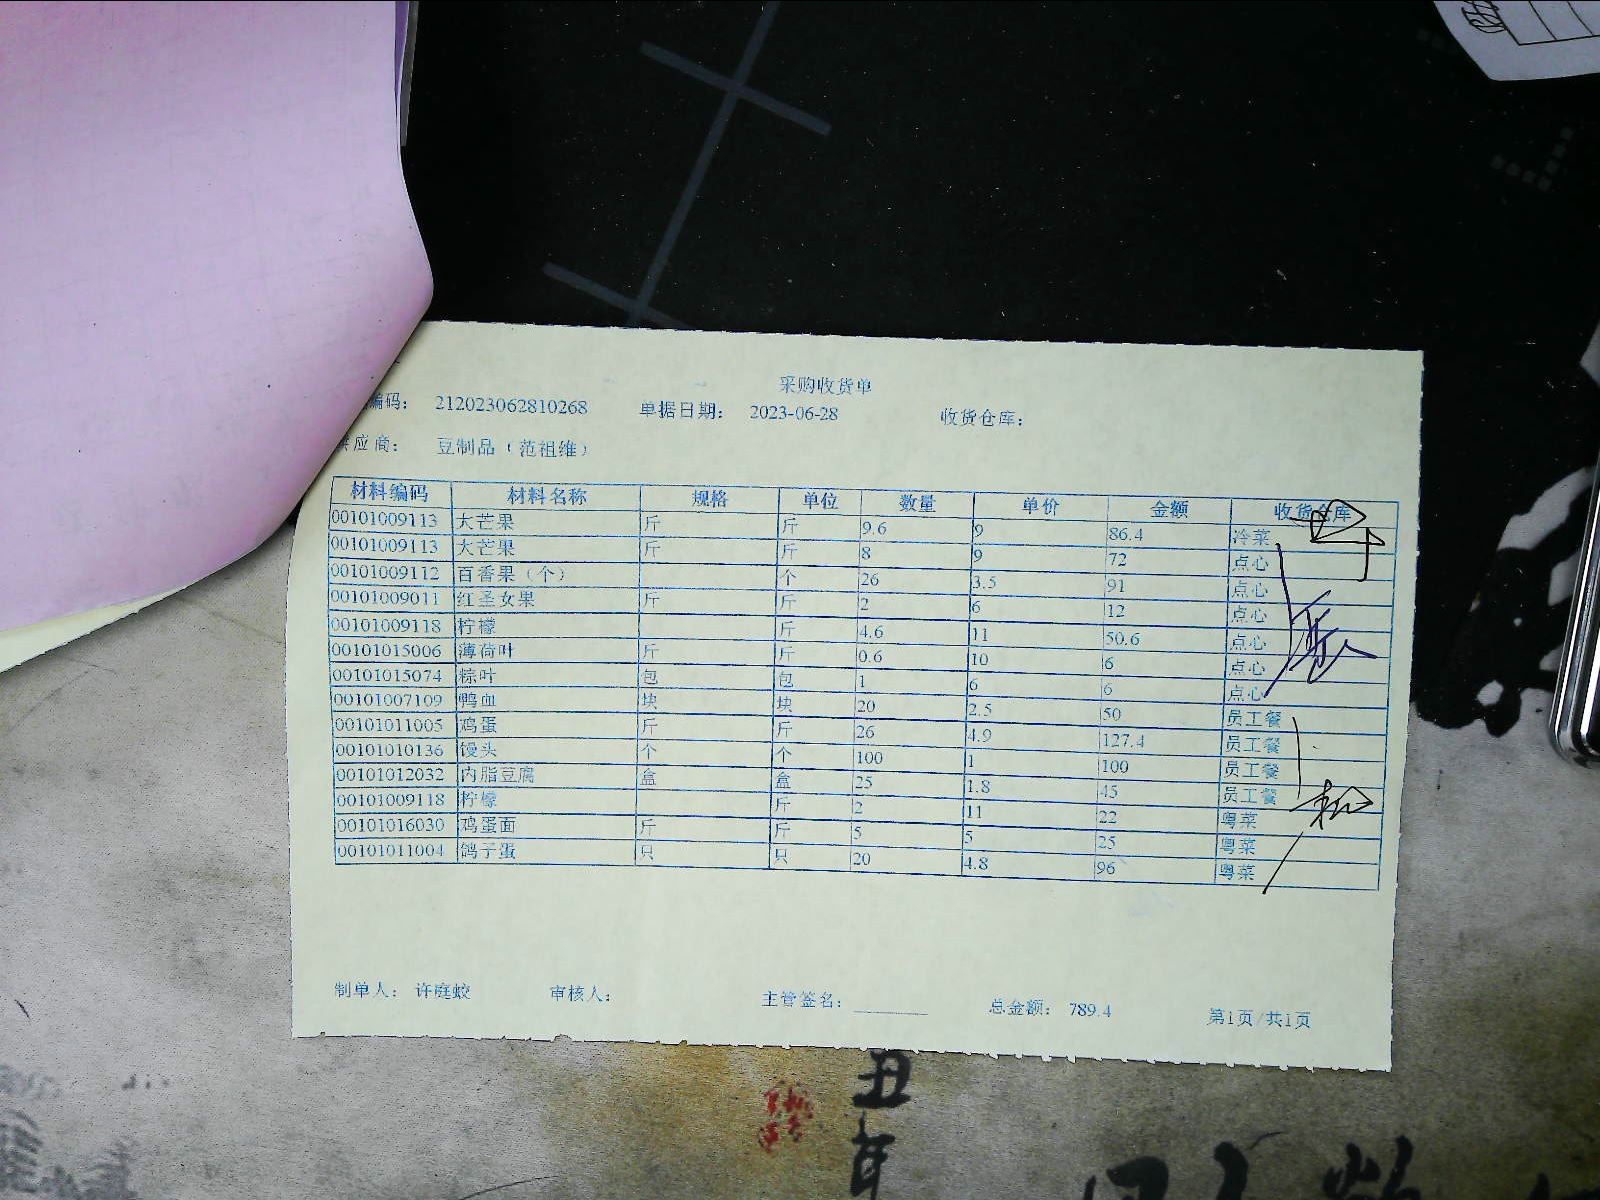 采购收货单
编码： 212023062810268 单据日期： 2023-06-28 收货仓库：
应商： 豆制品（范祖维）
材料编码 材料名称 规格 单位 数量 单价 金额 收货仓库
00101009113 大芒果 斤 斤 9.6 9 86.4 冷菜
00101009113 大芒果 斤 斤 8 9 72 点心
00101009112 百香果（个） 个 26 3.5 91 点心
00101009011 红圣女果 斤 斤 2 6 12 点心
00101009118 柠檬 斤 4.6 11 50.6 点心
00101015006 薄荷叶 斤 斤 0.6 10 6 点心
00101015074 粽叶 包 包 1 6 6 点心
00101007109 鸭血 块 块 20 2.5 50 员工餐
00101011005 鸡蛋 斤 斤 26 4.9 127.4 员工餐
00101010136 馒头 个 个 100 1 100 员工餐
00101012032 内脂豆腐 盒 盒 25 1.8 45 员工餐
00101009118 柠檬 斤 2 11 22 粤菜
00101016030 鸡蛋面 斤 斤 5 5 25 粤菜
00101011004 鸽子蛋 只 只 20 4.8 96 粤菜
制单人： 许庭蛟 审核人： 主管签名： 总金额： 789.4 第1页/共1页
丑
年